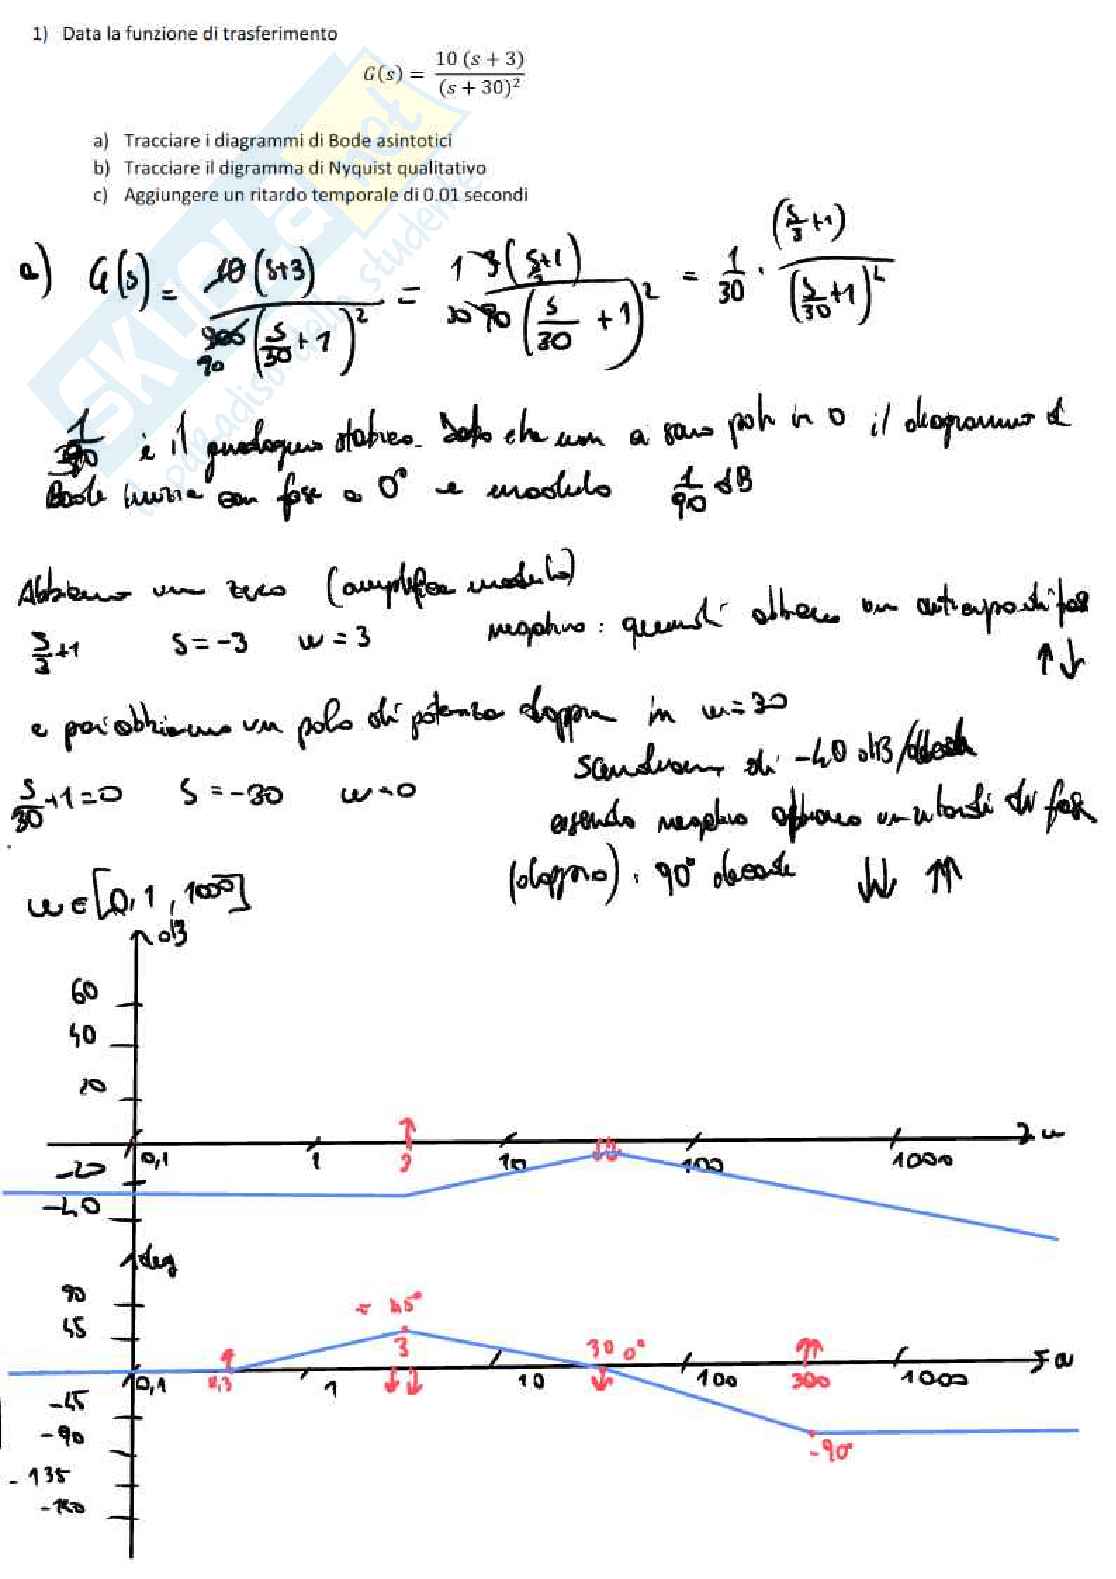 1) Data la funzione di trasferimento
G(s) = 10 (s + 3) / (s + 30)²
a) Tracciare i diagrammi di Bode asintotici
b) Tracciare il digramma di Nyquist qualitativo
c) Aggiungere un ritardo temporale di 0.01 secondi
a) G(s) = 10 (s+3) / 900 (s/30 + 1)² = 1 3 (s/3+1) / 30 90 (s/30 + 1)² = 1/30 · (s/3+1) / (s/30+1)²
90
è il guadagno statico. Dato che non ci sono poli in 0 il diagramma di
Bode inizia con fase a 0° e modulo 1/90 dB
Abbiamo uno zero (amplifica modulo)
negativo: quindi abbiamo un anticipo di fase
s/3+1 s = -3 w = 3
↑↓
e poi abbiamo un polo di potenza doppia in w=30
di -40 dB/decade
s/30+1=0 s = -30 w=0
essendo negativo abbiamo un di fase
(doppio) : 90° decade ↓↓ ↑↑
w∈[0,1, 1000]
dB
60
40
20
-20
-40
0,1 1 3 10 100 1000 w
deg
90
45
-45
-90
-135
-180
= 45°
3
30 0°
0,3
0,1 1 10 100 300 1000
-90°
SKUOLA.net
il paradiso dello studente